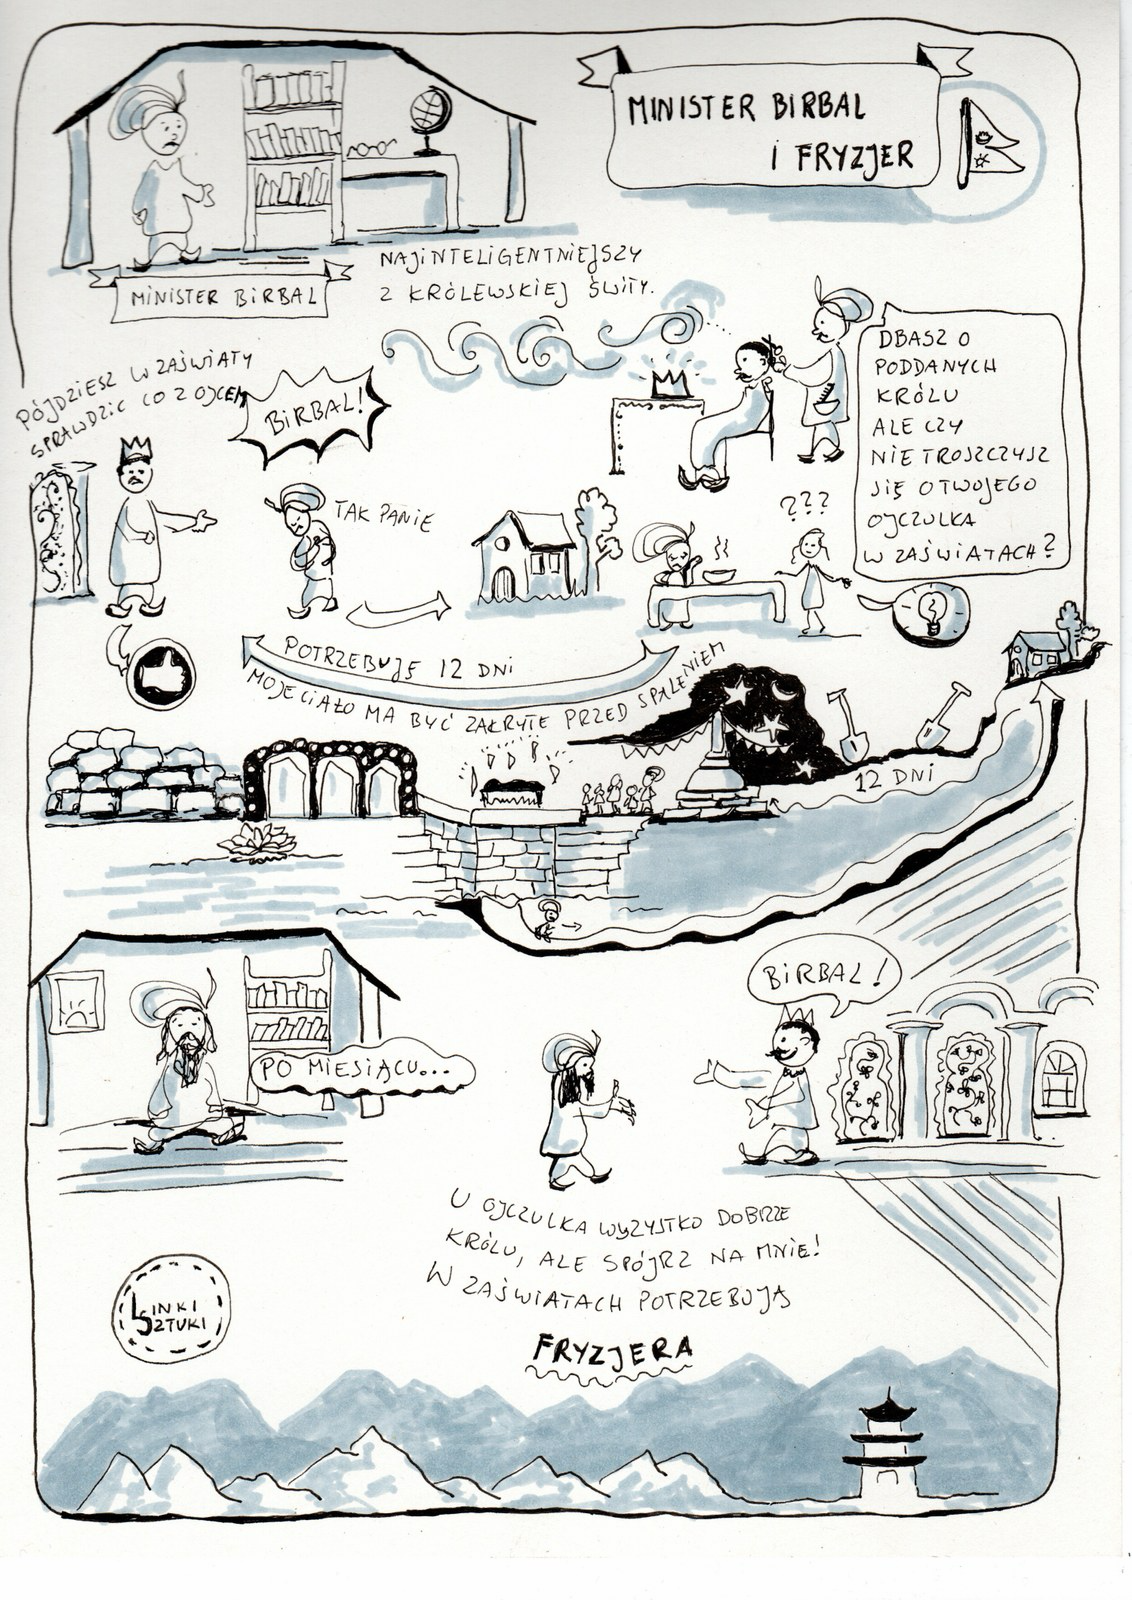 MINISTER BIRBAL
I FRYZJER
MINISTER BIRBAL
NAJINTELIGENTNIEJSZY
Z KRÓLEWSKIEJ ŚWITY.
DBASZ O
PODDANYCH
KRÓLU
ALE CZY
NIE TROSZCZYSZ
SIĘ O TWOJEGO
OJCZULKA
W ZAŚWIATACH?
PÓJDZIESZ W ZAŚWIATY
SPRAWDZIĆ CO Z OJCEM
BIRBAL!
TAK PANIE
???
POTRZEBUJĘ 12 DNI
MOJE CIAŁO MA BYĆ ZAKRYTE PRZED SPALENIEM
12 DNI
PO MIESIĄCU...
BIRBAL!
U OJCZULKA WSZYSTKO DOBRZE
KRÓLU, ALE SPÓJRZ NA MNIE!
W ZAŚWIATACH POTRZEBUJĄ
FRYZJERA
LINKI
SZTUKI